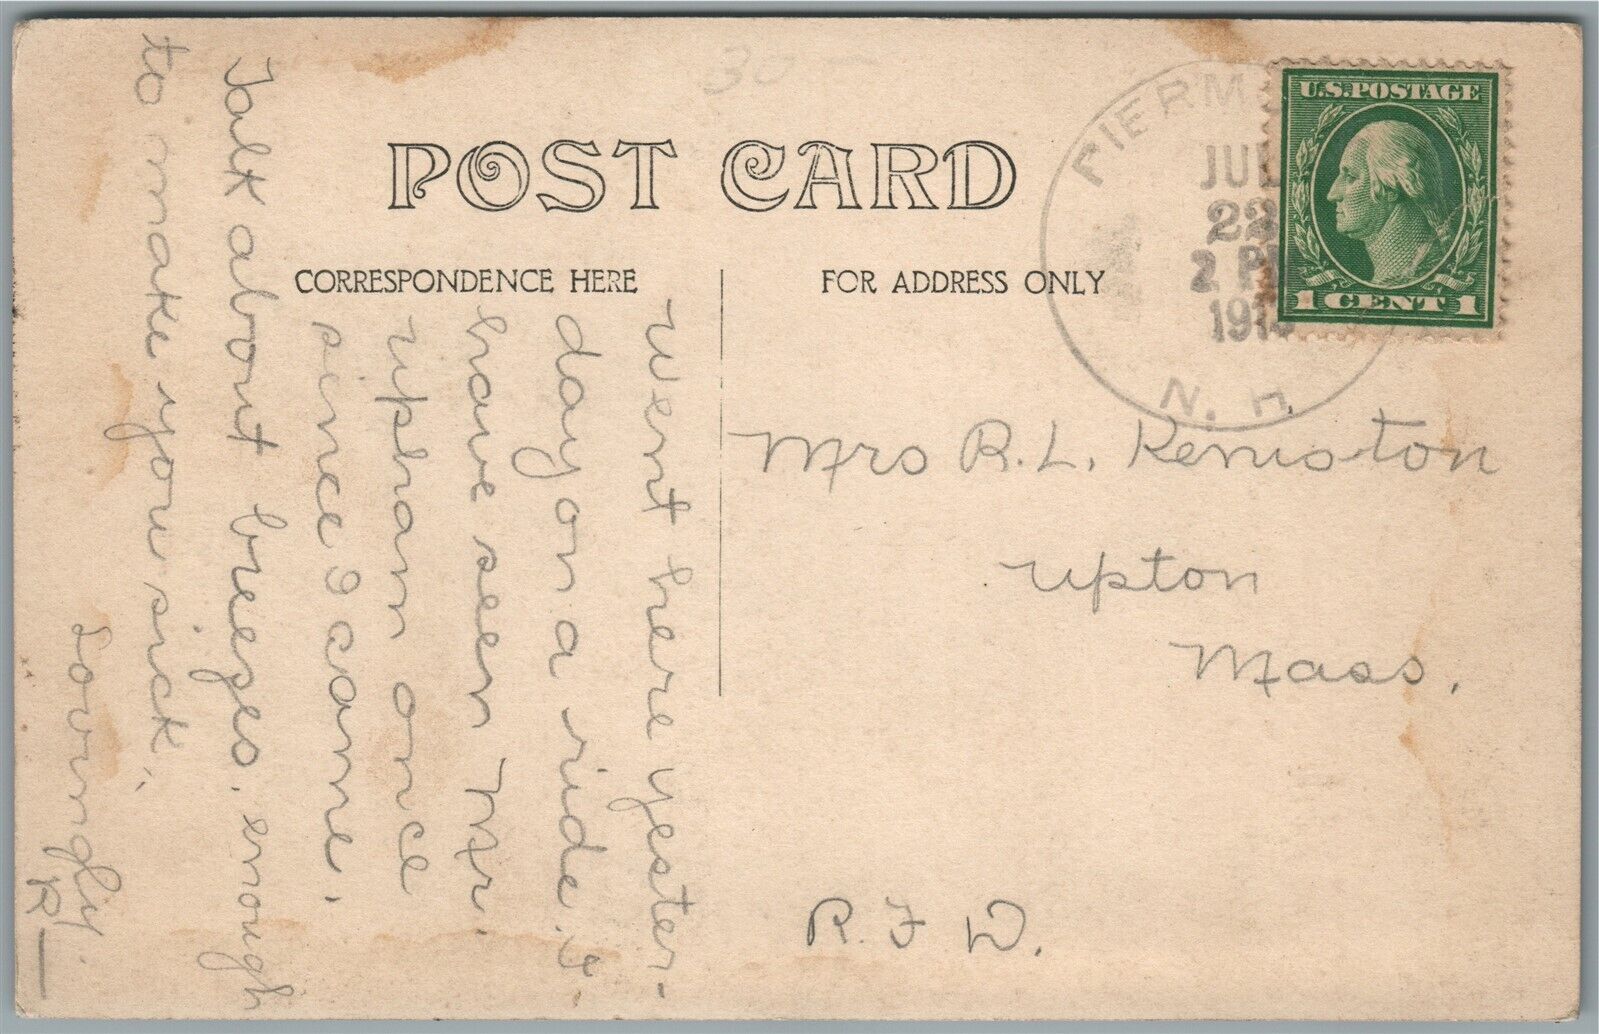 POST CARD
CORRESPONDENCE HERE
FOR ADDRESS ONLY
PIERM
JUL
22
2 P
191
N. H.
U.S. POSTAGE
1 CENT 1
Went here yester-
day on a ride. I
have seen Mr.
Upham once
since I came.
Talk about breezes, enough
to make you sick.
Lovingly.
R—
Mrs R. L. Keniston
Upton
Mass.
R. F. D.
30 —